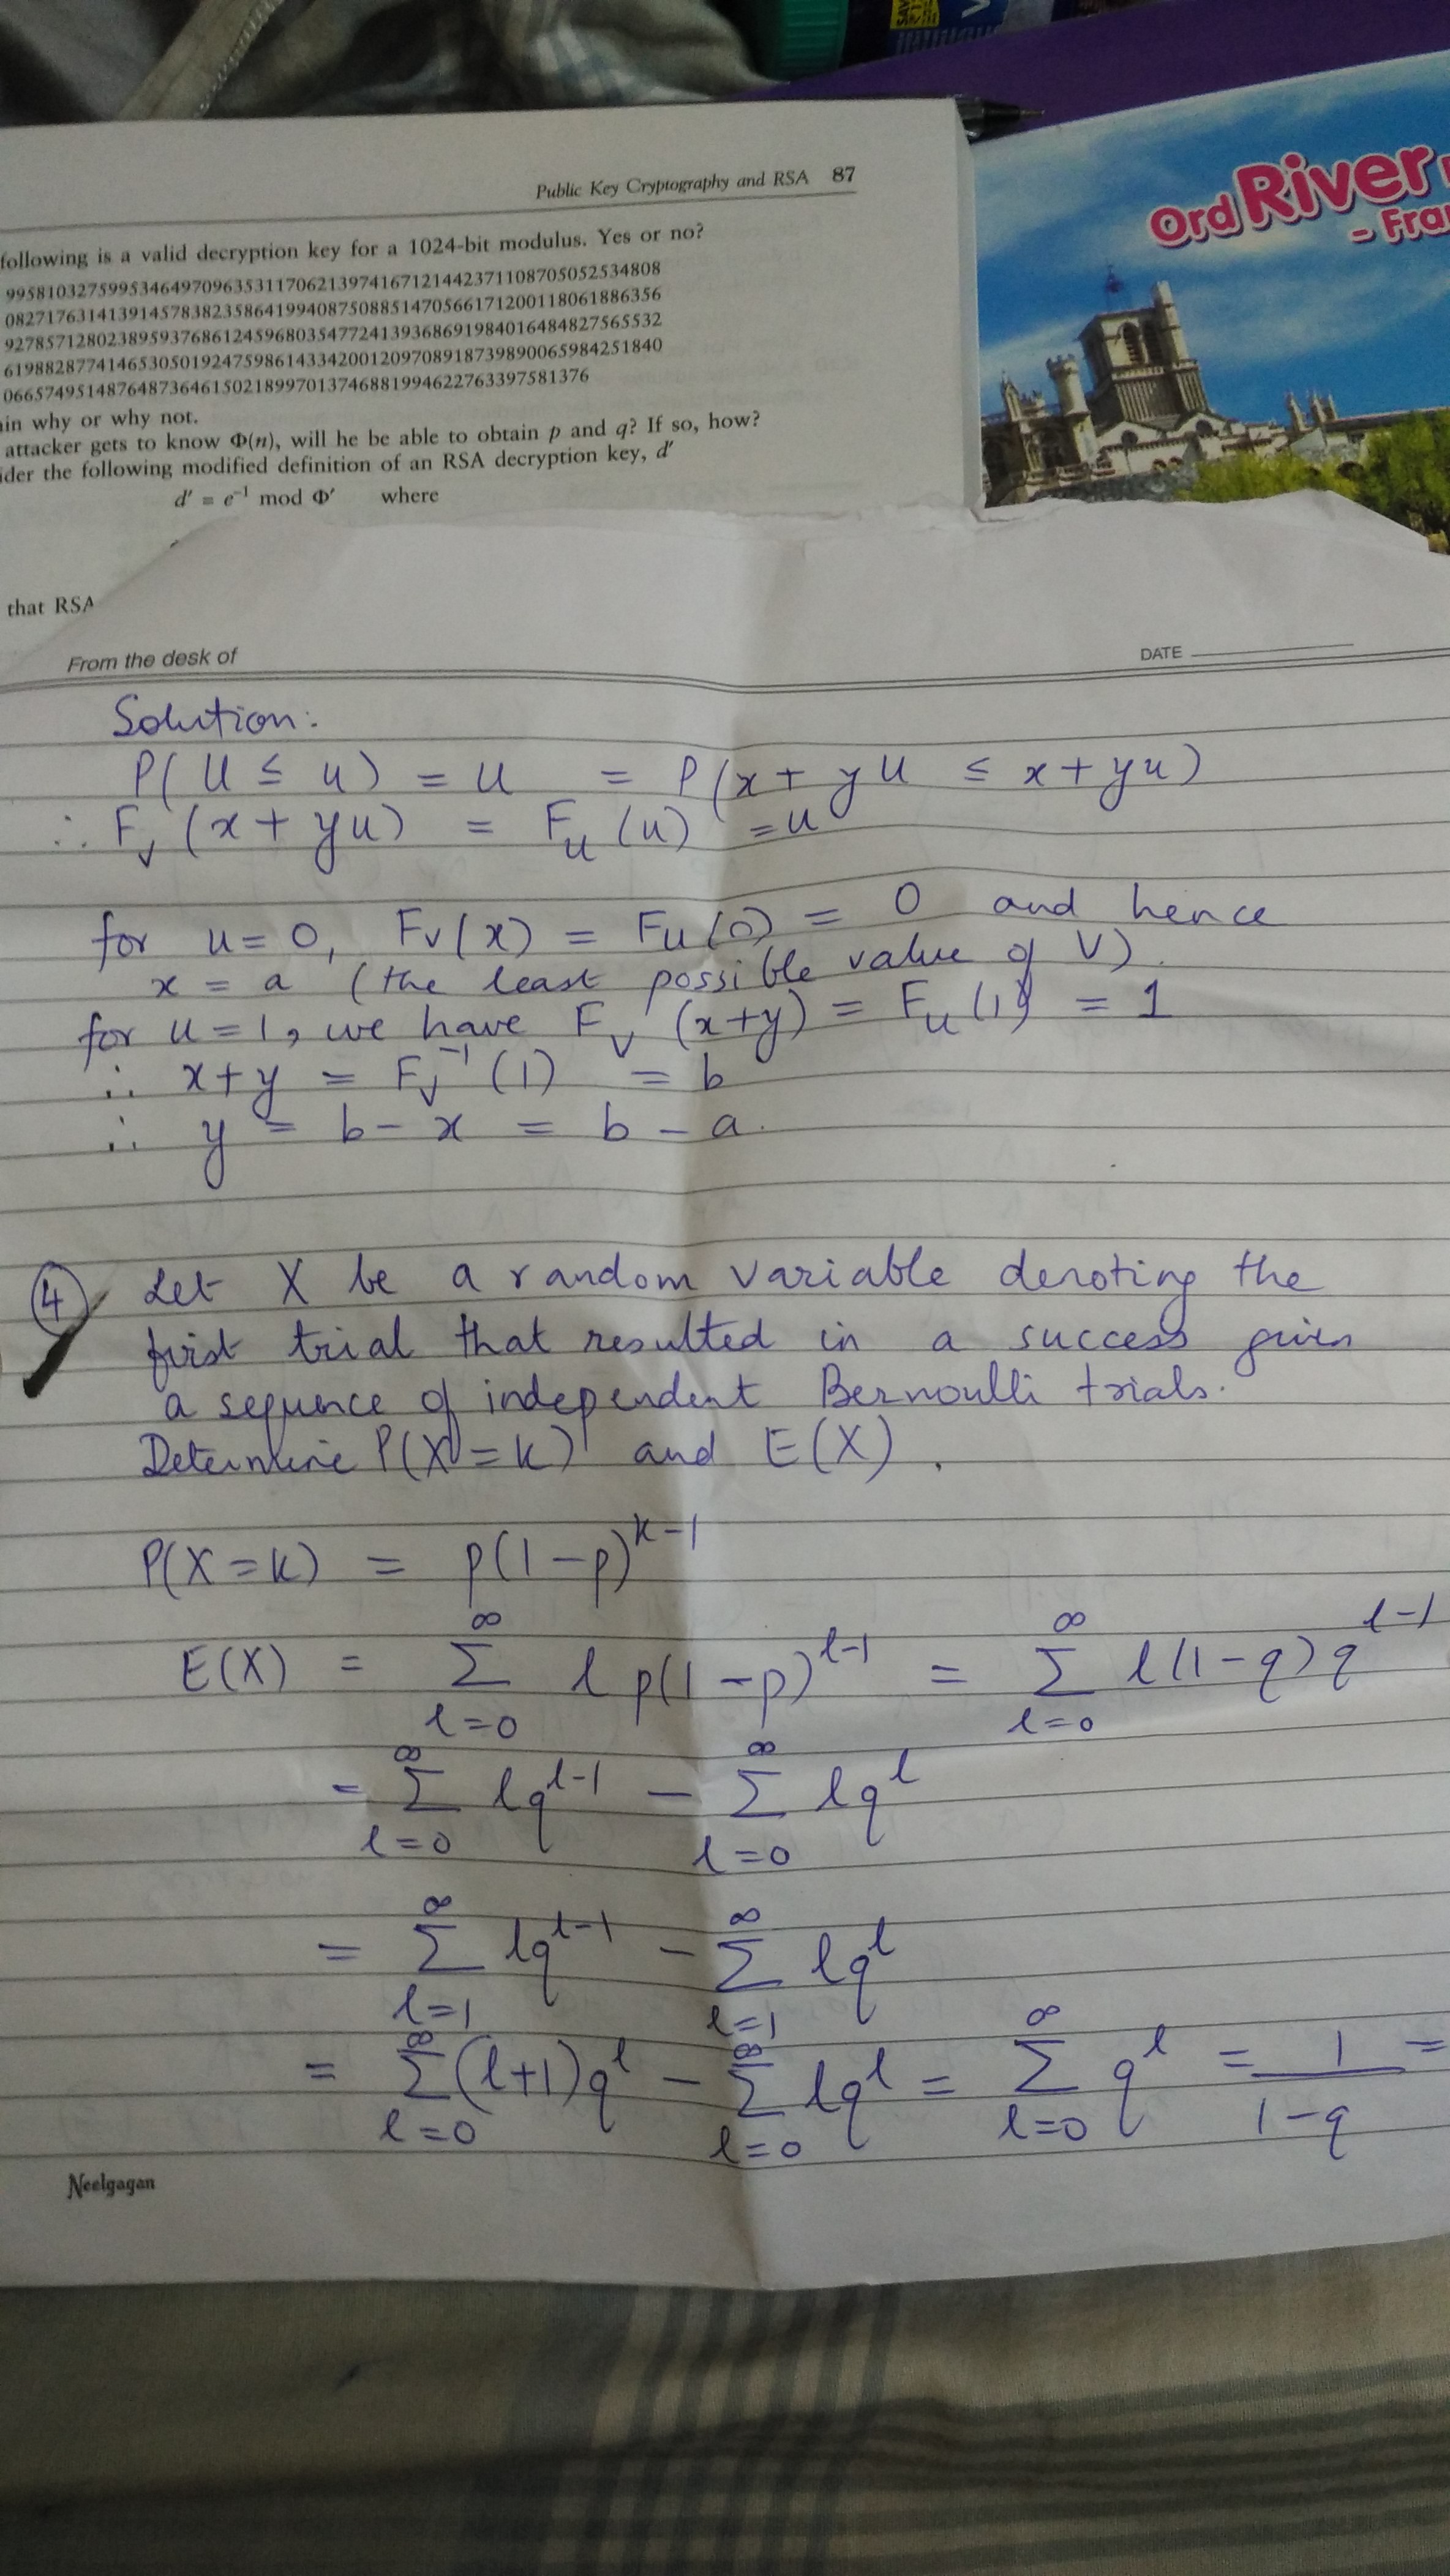 Public Key Cryptography and RSA 87
following is a valid decryption key for a 1024-bit modulus. Yes or no?
99581032759953464970963531170621397416712144237110870505253480​8
08271763141391457838235864199408750885147056617120011806188635​6
92785712802389593768612459680354772413936869198401648482756553​2
61988287741465305019247598614334200120970891873989006598425184​0
06657495148764873646150218997013746881994622763397581376
in why or why not.
attacker gets to know Φ(n), will he be able to obtain p and q? If so, how?
ider the following modified definition of an RSA decryption key, d′
d′ = e⁻¹ mod Φ′ where
that RSA
Ord River
- Fra
From the desk of
DATE
Solution:
P(U ≤ u) = u = P(x + yU ≤ x + yu)
∴ F_V (x + yu) = F_U (u) = u
for u = 0, F_V (x) = F_U (0) = 0 and hence
x = a (the least possible value of V).
for u = 1, we have F_V (x+y) = F_U (1) = 1
∴ x+y = F_V⁻¹ (1) = b
∴ y = b - x = b - a.
4 Let X be a random variable denoting the
first trial that resulted in a success given
a sequence of independent Bernoulli trials.
Determine P(X = k) and E(X).
P(X = k) = p(1-p)^(k-1)
E(X) = Σ_(l=0)^∞ l p(1-p)^(l-1) = Σ_(l=0)^∞ l(1-q) q^(l-1)
= Σ_(l=0)^∞ l q^(l-1) - Σ_(l=0)^∞ l q^l
= Σ_(l=1)^∞ l q^(l-1) - Σ_(l=1)^∞ l q^l
= Σ_(l=0)^∞ (l+1) q^l - Σ_(l=0)^∞ l q^l = Σ_(l=0)^∞ q^l = 1/(1-q) =
Neelgagan